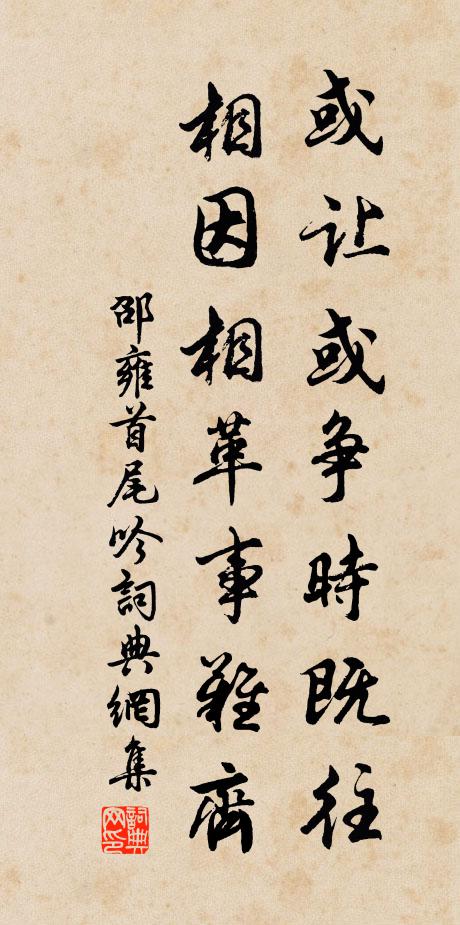 或让或争時既往
相因相革事難齊
邵雍首尾吟詞典網集
詞典网印